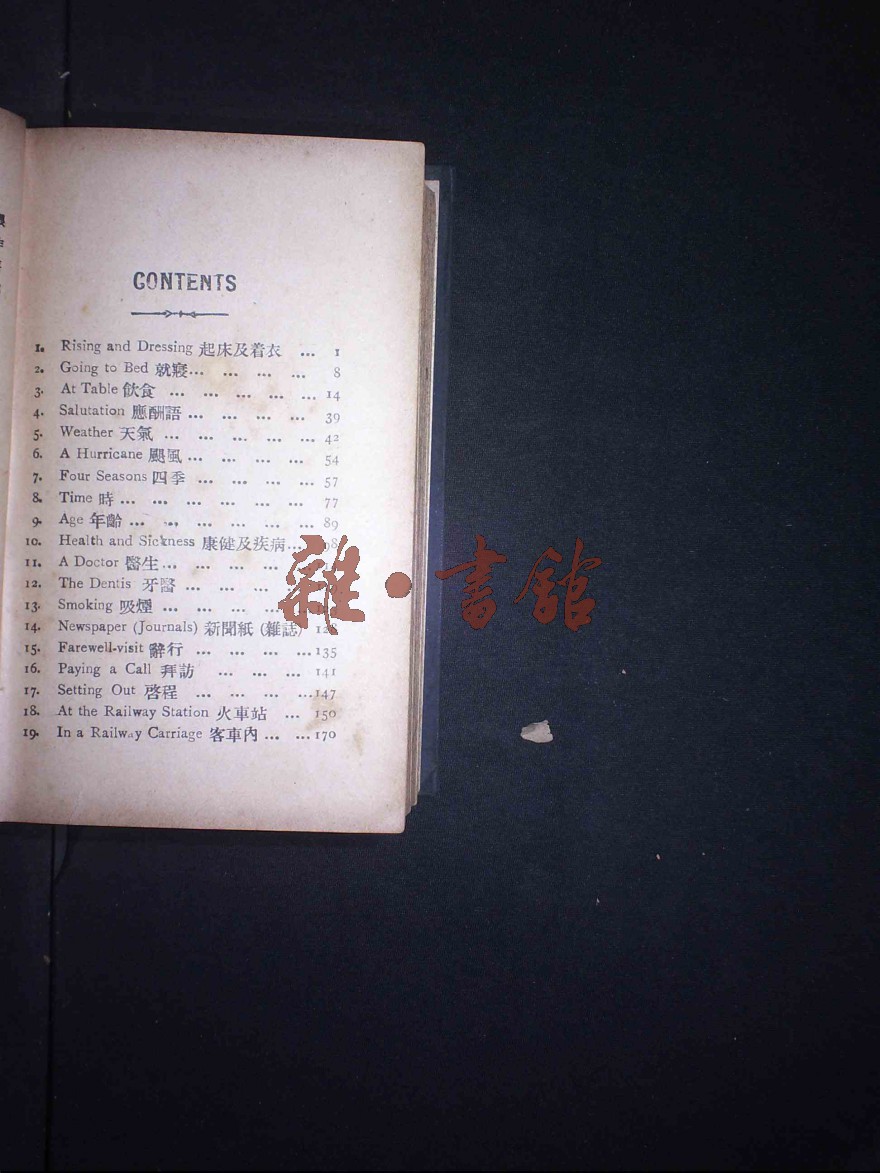 CONTENTS
1. Rising and Dressing 起床及着衣 ... 1
2. Going to Bed 就寢... ... ... ... 8
3. At Table 飲食 ... ... ... ... ... 14
4. Salutation 應酬語 ... ... ... ... 39
5. Weather 天氣 ... ... ... ... ... 42
6. A Hurricane 颶風... ... ... ... 54
7. Four Seasons 四季 ... ... ... ... 57
8. Time 時 ... ... ... ... ... ... 77
9. Age 年齡 ... ... ... ... ... ... 89
10. Health and Sickness 康健及疾病...
11. A Doctor 醫生... ... ... ...
12. The Dentis 牙醫 ... ... ...
13. Smoking 吸煙 ... ... ... ...
14. Newspaper (Journals) 新聞紙 (雜誌)
15. Farewell-visit 辭行 ... ... ... ...135
16. Paying a Call 拜訪 ... ... ... 141
17. Setting Out 啓程 ... ... ... ...147
18. At the Railway Station 火車站 ... 150
19. In a Railway Carriage 客車內 ... ... 170
雜·書館